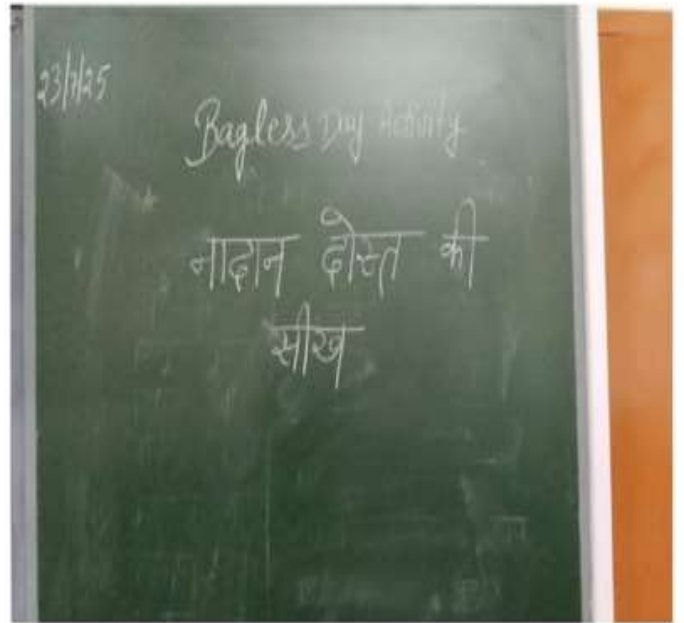 23/7/25
Bagless Day Activity
नादान दोस्त की
सीख